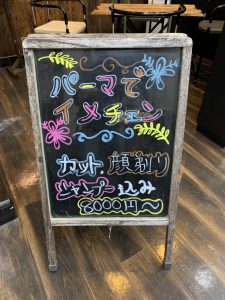 パーマで
イメチェン
カット.顔剃り
シャンプー込み
8000円～